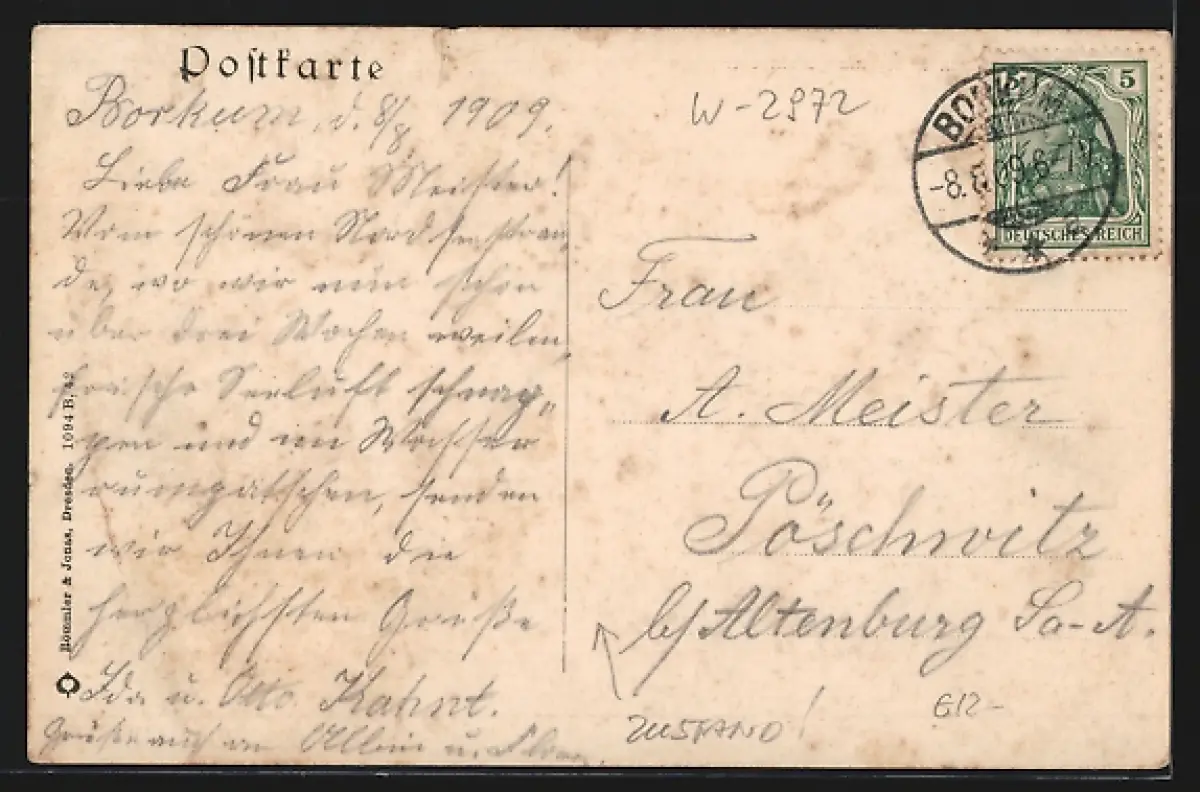 Postkarte
Borkum, d. 8/8 1909.
Liebe Frau Meister!
Vom schönen Nordseestran-
de, wo wir nun schon
über drei Wochen weilen,
frische Seeluft schnap-
pen und im Wasser
rumpatschen, senden
wir Ihnen die
herzlichsten Grüße
Ida u. Otto Kahnt.
Grüße auch an u.
Römmler & Jonas, Dresden. 1094 B. 42
W-2972
5
DEUTSCHES REICH
BORKUM
-8.8.09.6-7N.
Frau
A. Meister
Pöschwitz
b/Altenburg Sa-A.
ZUSTAND!
G12-